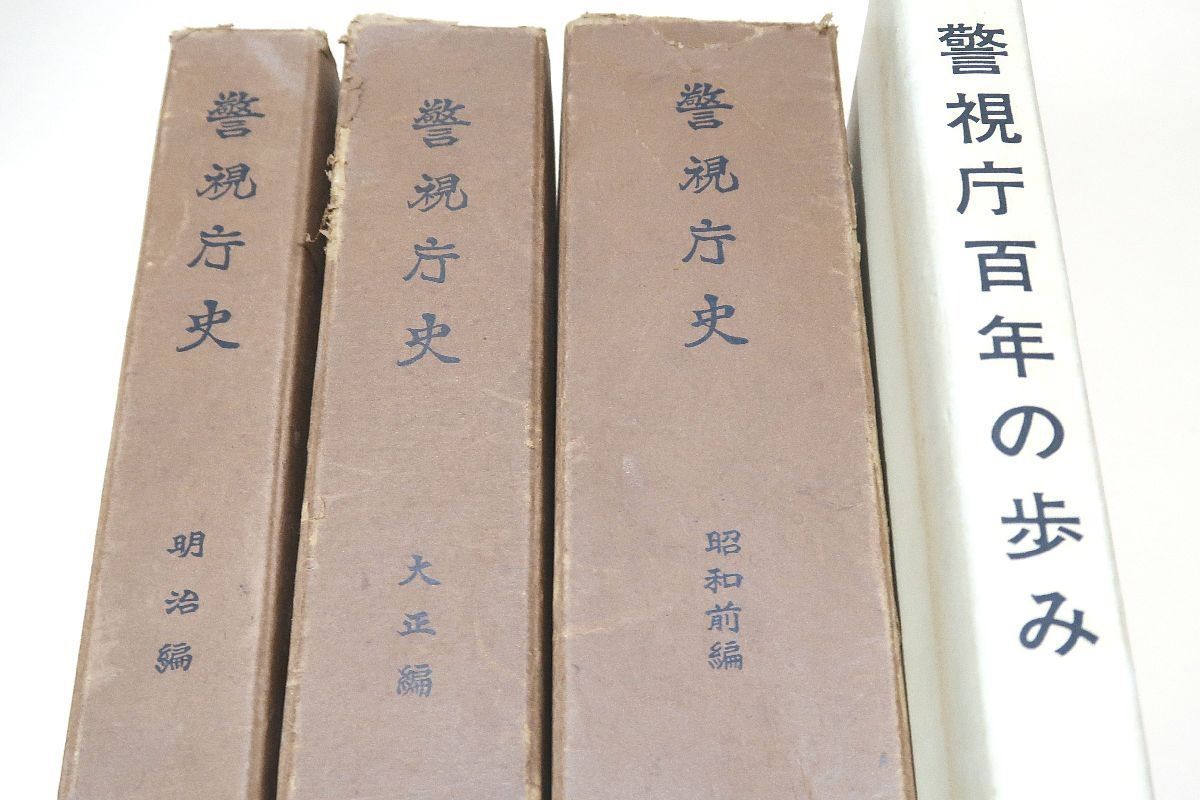 警視庁史
明治編
警視庁史
大正編
警視庁史
昭和前編
警視庁百年の歩み